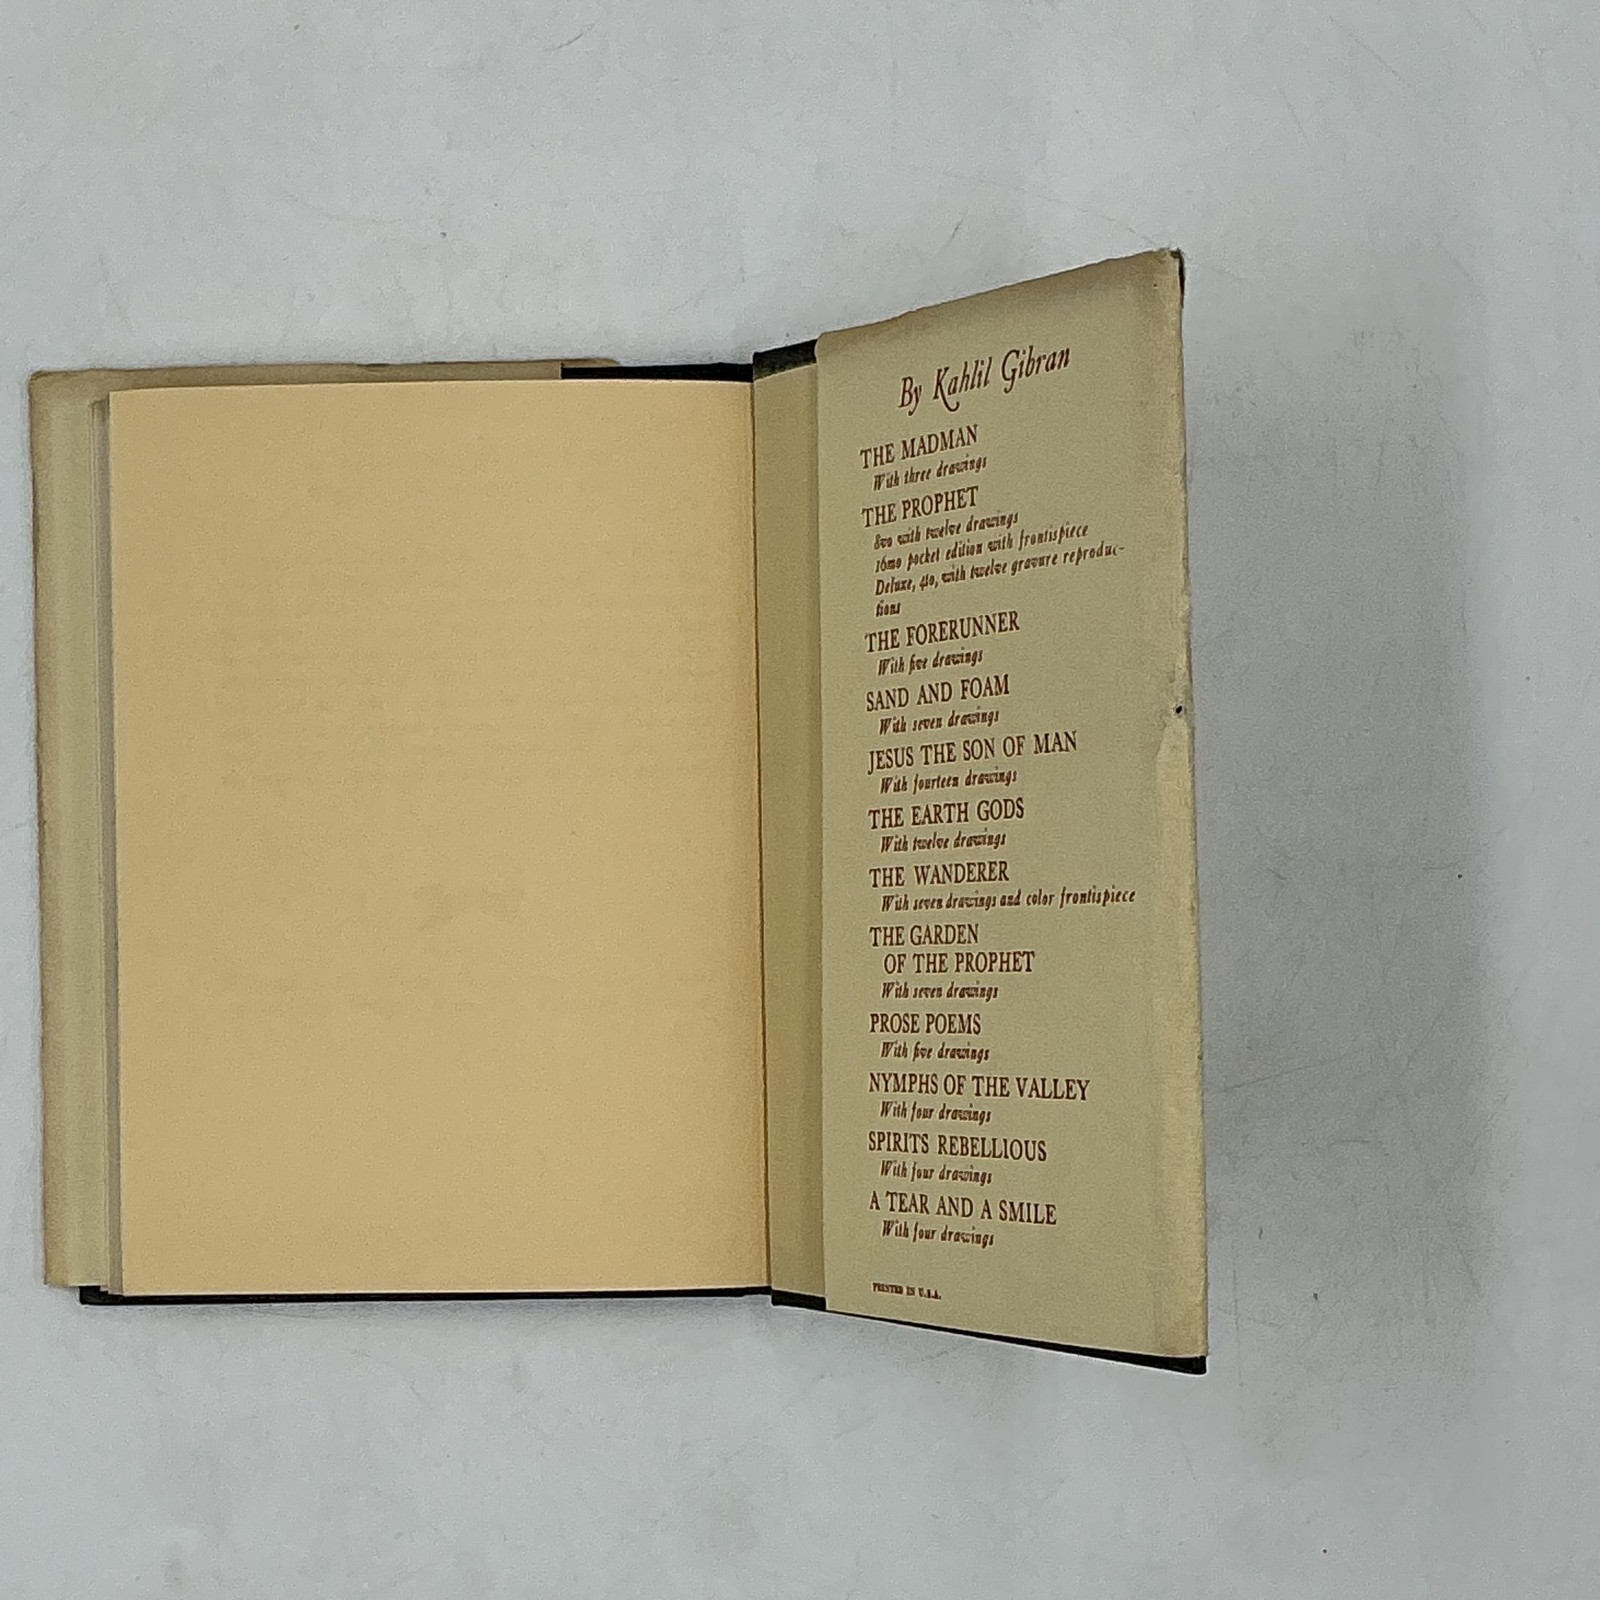 By Kahlil Gibran
THE MADMAN
With three drawings
THE PROPHET
8vo with twelve drawings
16mo pocket edition with frontispiece
Deluxe, 4to, with twelve gravure reproduc-
tions
THE FORERUNNER
With five drawings
SAND AND FOAM
With seven drawings
JESUS THE SON OF MAN
With fourteen drawings
THE EARTH GODS
With twelve drawings
THE WANDERER
With seven drawings and color frontispiece
THE GARDEN
OF THE PROPHET
With seven drawings
PROSE POEMS
With five drawings
NYMPHS OF THE VALLEY
With four drawings
SPIRITS REBELLIOUS
With four drawings
A TEAR AND A SMILE
With four drawings
PRINTED IN U.S.A.